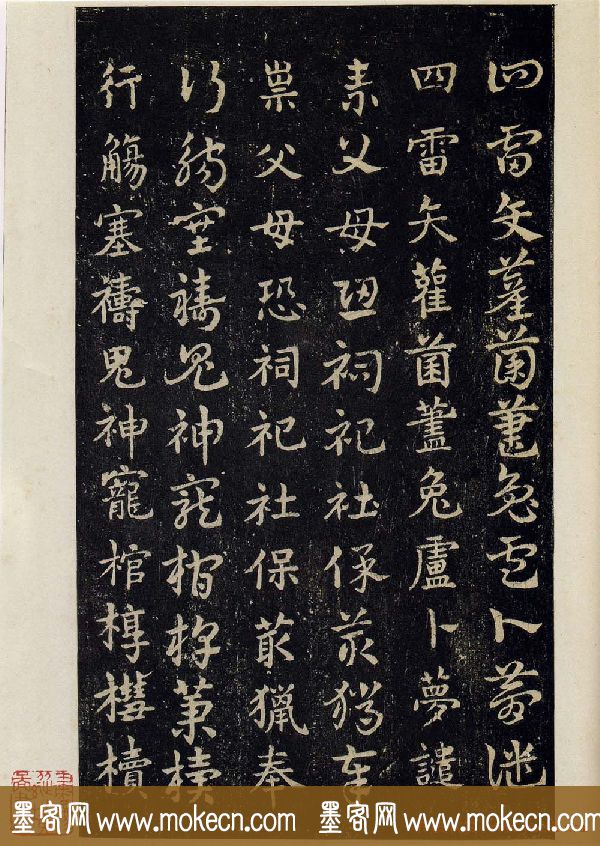 四雷矢雚菌藎兔盧卜夢譴
四雷矢雚菌藎兔盧卜夢譴
祟父母恐祠祀社保菆獵奉
祟父母恐祠祀社保菆獵奉
行觴塞禱鬼神寵棺椁槥櫝
行觴塞禱鬼神寵棺椁槥櫝
墨客网 www.mokecn.com 墨客网 www.mokecn.com